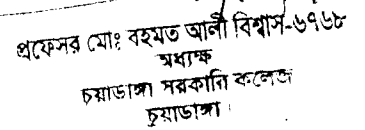 প্রফেসর মোঃ রহমত আলী বিশ্বাস-৬৭৬৮
অধ্যক্ষ
চুয়াডাঙ্গা সরকারি কলেজ
চুয়াডাঙ্গা।